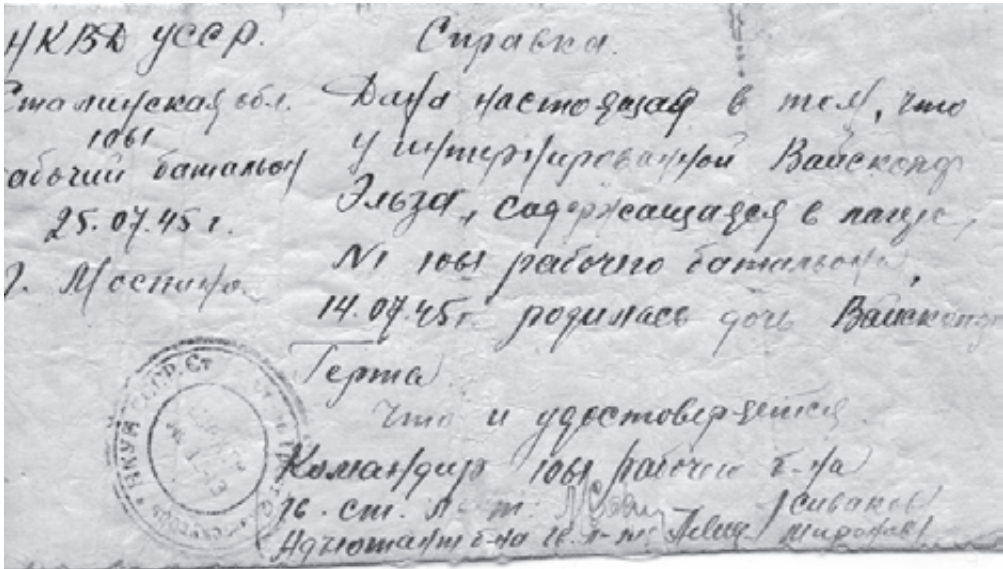 НКВД УССР.
Сталинская обл.
1061
рабочий батальон
25.07.45 г.
г. Моспино
Справка.
Дана настоящая в том, что
у интернированной Вайскопф
Эльза, содержащаяся в лагере,
N1 1061 рабочего батальона,
14.07.45 г. родилась дочь Вайскопф
Герта
Что и удостоверяется
Командир 1061 рабочего б-на
ст. (Сиваков)
Адъютант б-на (Миронов)